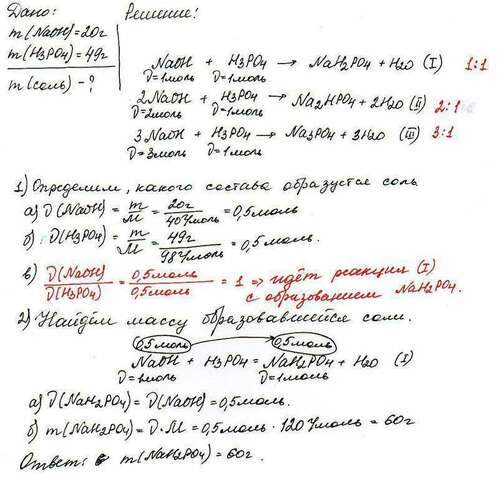 Дано:
Решение!
m(NaOH)=20г
m(H3PO4)=49г
m(соль)-?
NaOH + H3PO4 → NaH2PO4 + H2O (I) 1:1
ν=1моль ν=1моль
2NaOH + H3PO4 → Na2HPO4 + 2H2O (II) 2:1
ν=2моль ν=1моль
3NaOH + H3PO4 → Na3PO4 + 3H2O (III) 3:1
ν=3моль ν=1моль
1) Определим, какого состава образуется соль
а) ν(NaOH) = m/M = 20г/40г/моль = 0,5моль
б) ν(H3PO4) = m/M = 49г/98г/моль = 0,5моль.
в) ν(NaOH)/ν(H3PO4) = 0,5моль/0,5моль = 1 => идёт реакция (I)
с образованием NaH2PO4.
2) Найдём массу образовавшейся соли.
0,5моль 0,5моль
NaOH + H3PO4 = NaH2PO4 + H2O (I)
ν=1моль ν=1моль
а) ν(NaH2PO4) = ν(NaOH) = 0,5моль.
б) m(NaH2PO4) = ν·M = 0,5моль · 120г/моль = 60г
Ответ: m(NaH2PO4) = 60г.